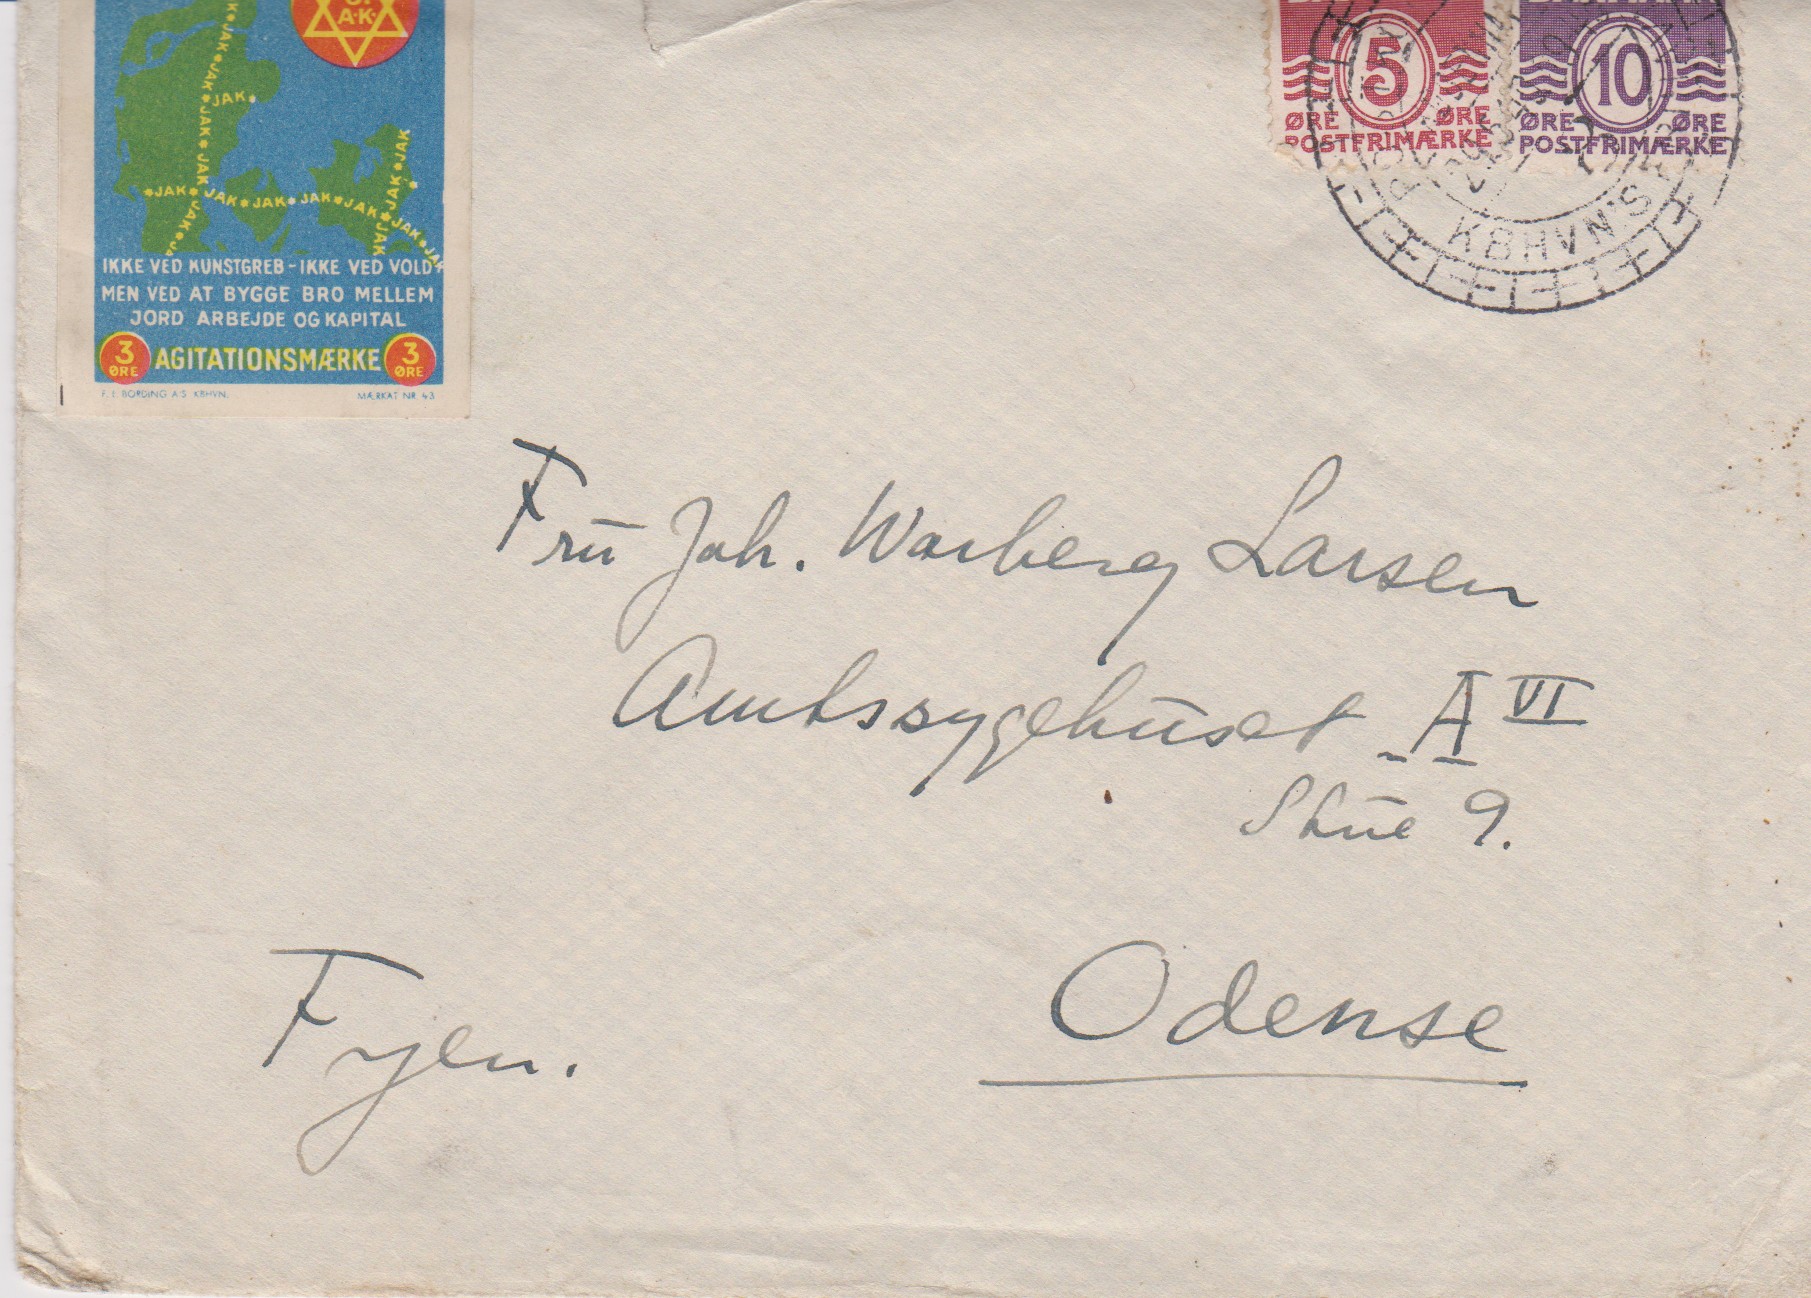 A·K·
JAK
JAK
JAK
JAK
JAK
JAK
JAK
JAK
JAK JAK JAK JAK JAK JAK
JAK
JAK
JAK
IKKE VED KUNSTGREB - IKKE VED VOLD
MEN VED AT BYGGE BRO MELLEM
JORD ARBEJDE OG KAPITAL
3 ØRE AGITATIONSMÆRKE 3 ØRE
F. E. BORDING A/S KBHVN. MÆRKAT NR. 43
5
ØRE ØRE
POSTFRIMÆRKE
10
ØRE ØRE
POSTFRIMÆRKE
KBHVN'S
Fru Joh. Warberg Larsen
Amtssygehuset A VI
Stue 9.
Odense
Fyen.